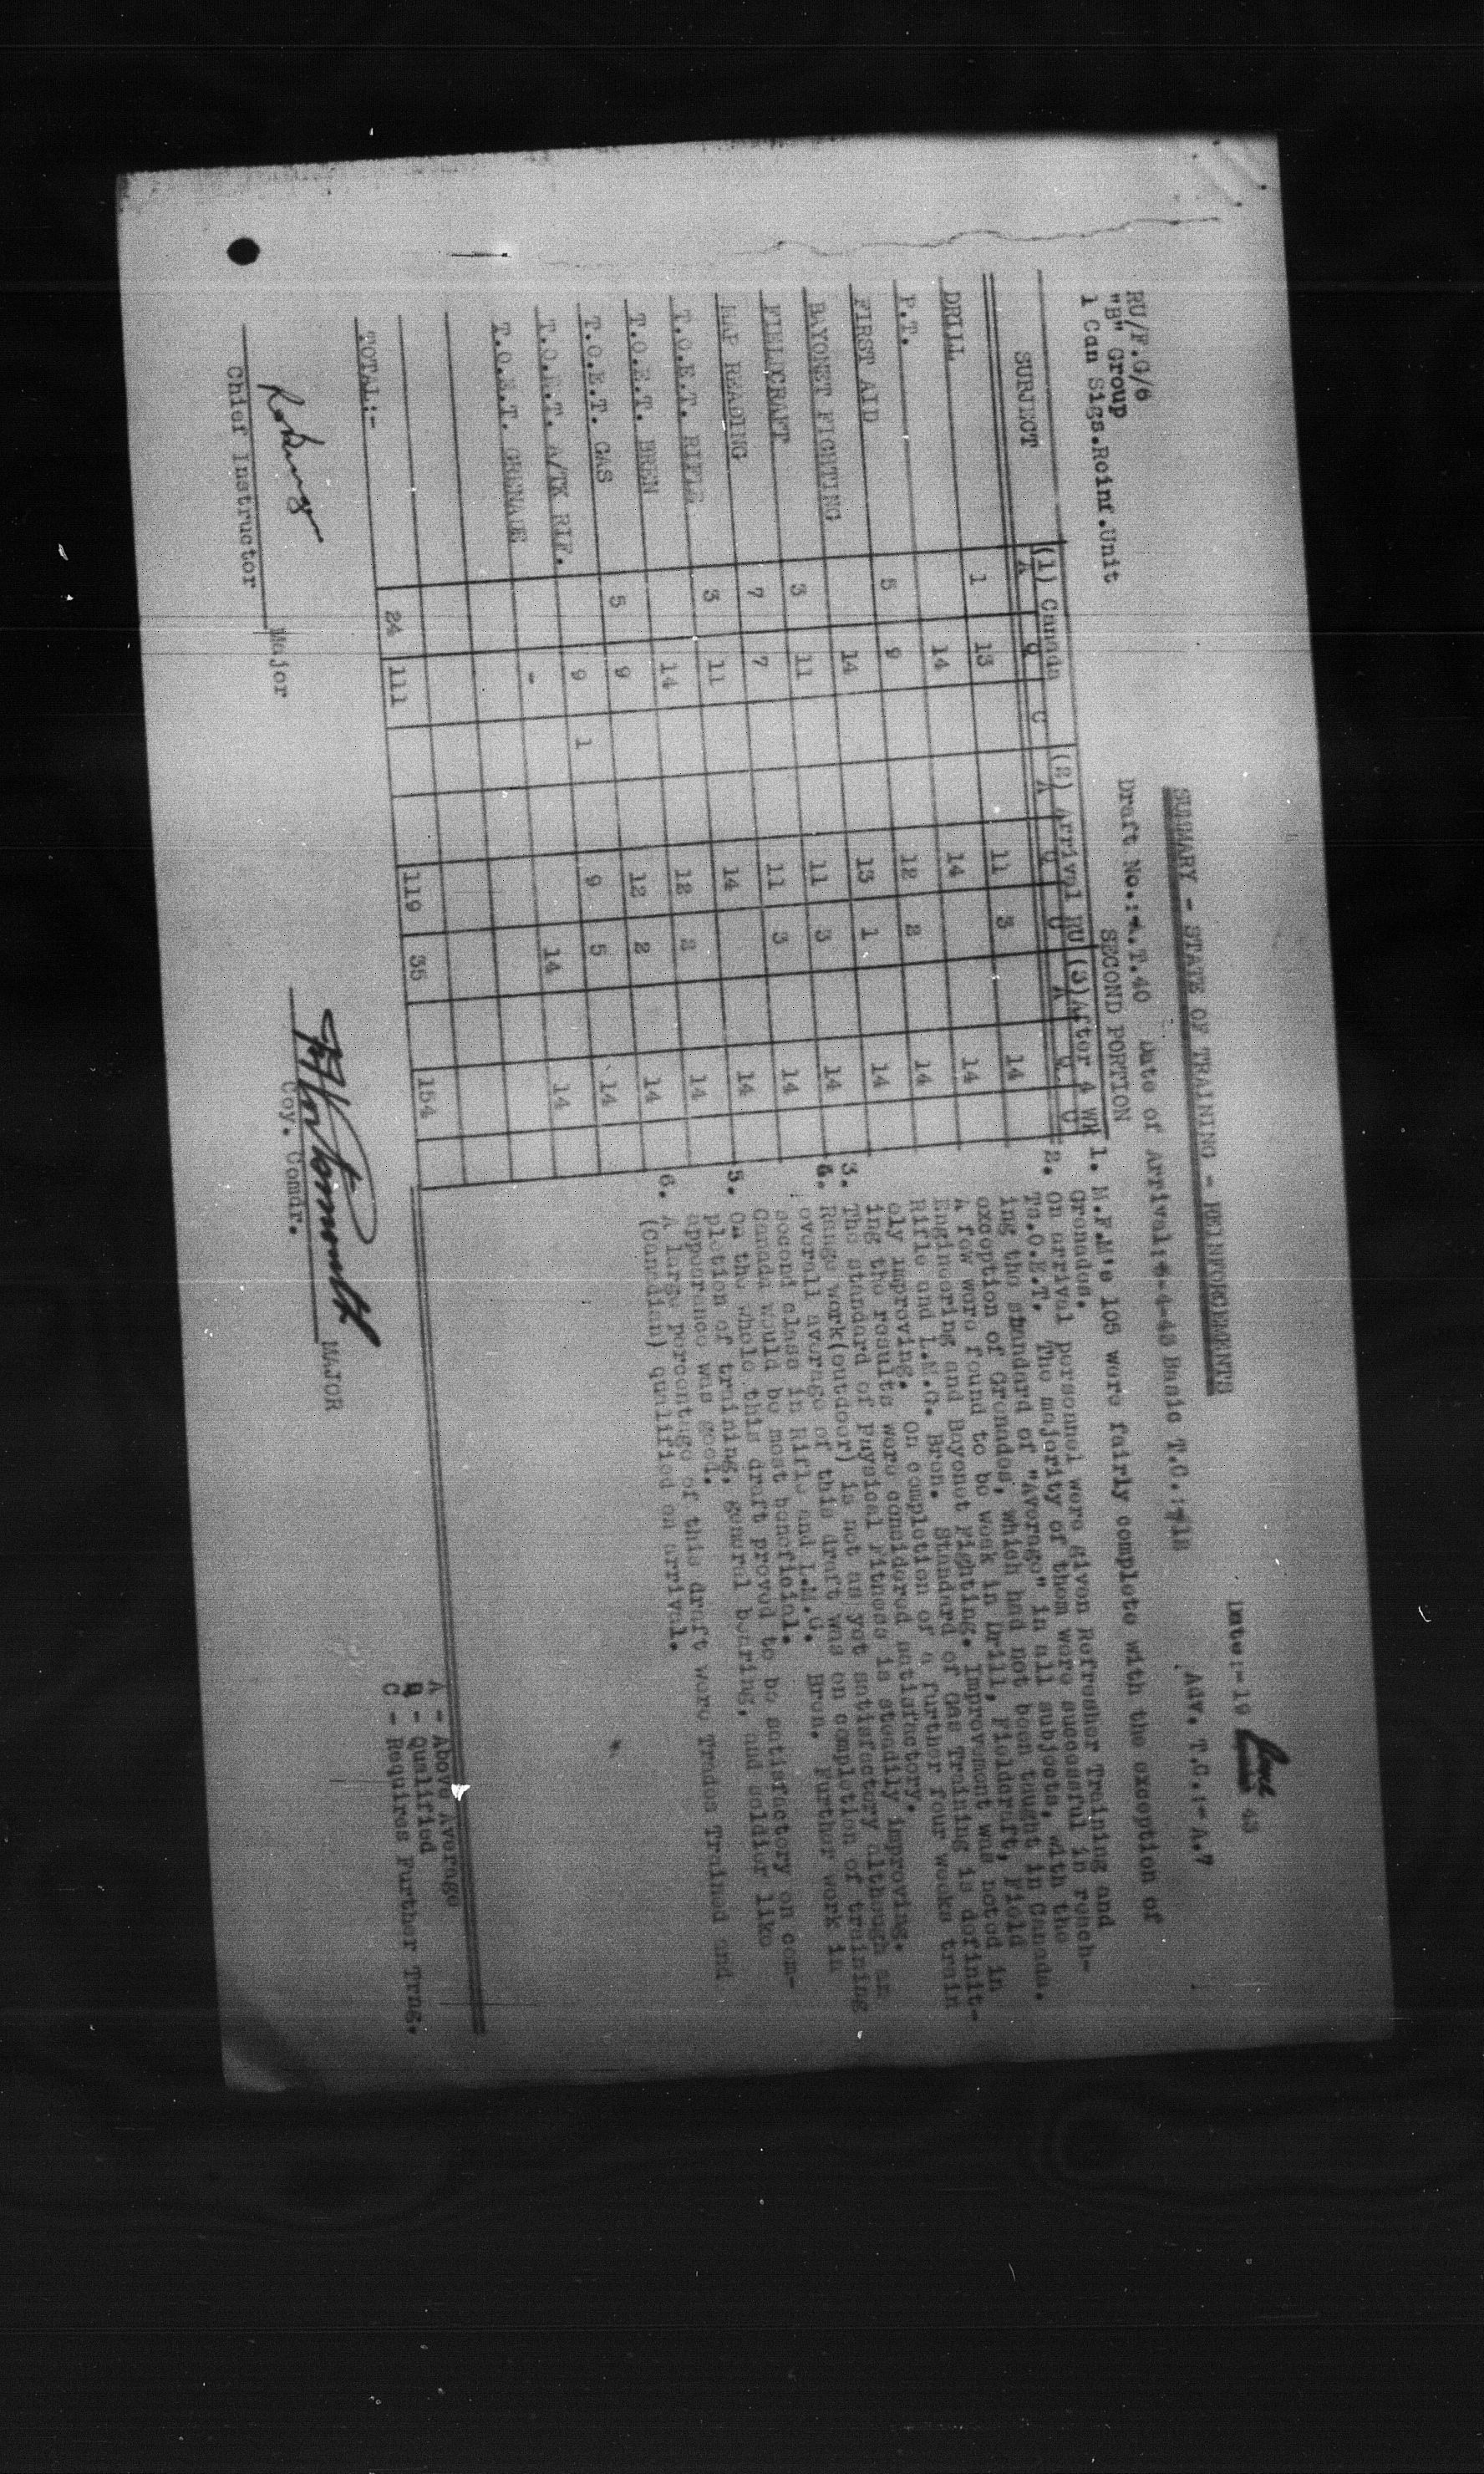 RU/F.G/6
"B" Group
1 Can Sigs.Reinf.Unit
Date:- 10 43
SUMMARY - STATE OF TRAINING - REINFORCEMENTS
Draft No.: .T.40 Date of Arrival: -4-43 Basic T.C.: Adv. T.C.:- A.7
SECOND PORTION
SUBJECT (1) Canada (2) Arrival RU (3)After 4 Wk
A Q C A Q C A Q C
DRILL 1 13 11 3 14
P.T. 14 14 14
FIRST AID 5 9 12 2 14
BAYONET FIGHTING 14 13 1 14
FIELDCRAFT 3 11 11 3 14
MAP READING 7 7 11 3 14
T.O.E.T. RIFLE 3 11 14 14
T.O.E.T. BREN 14 12 2 14
T.O.E.T. GAS 5 9 12 2 14
T.O.E.T. A/TK RIF. 9 1 9 5 14
T.O.E.T. GRENADE - 14 14
TOTAL:- 24 111 119 35 154
1. M.F.M's 105 were fairly complete with the exception of
Grenades.
2. On arrival personnel were given Refresher Training and
Ts.O.E.T. The majority of them were successful in reach-
ing the standard of "Average" in all subjects, with the
exception of Grenades, which had not been taught in Canada.
A few were found to be weak in Drill, Fieldcraft, Field
Engineering and Bayonet Fighting. Improvement was noted in
Rifle and L.M.G. Bren. Standard of Gas Training is definit-
ely improving. On completion of a further four weeks train
ing the results were considered satisfactory.
3. The standard of Physical Fitness is steadily improving.
4. Range work(outdoor) is not as yet satisfactory although an
overall average of this draft was on completion of training
second class in Rifle and L.M.G. Bren. Further work in
Canada would be most beneficial.
5. On the whole this draft proved to be satisfactory on com-
pletion of training, general bearing, and soldier like
appearance was good.
6. A large percentage of this draft were Trades Trained and
(Canadian) qualified on arrival.
A - Above Average
- Qualified
C - Requires Further Trng.
Major
Chief Instructor
MAJOR
Coy. Comdr.